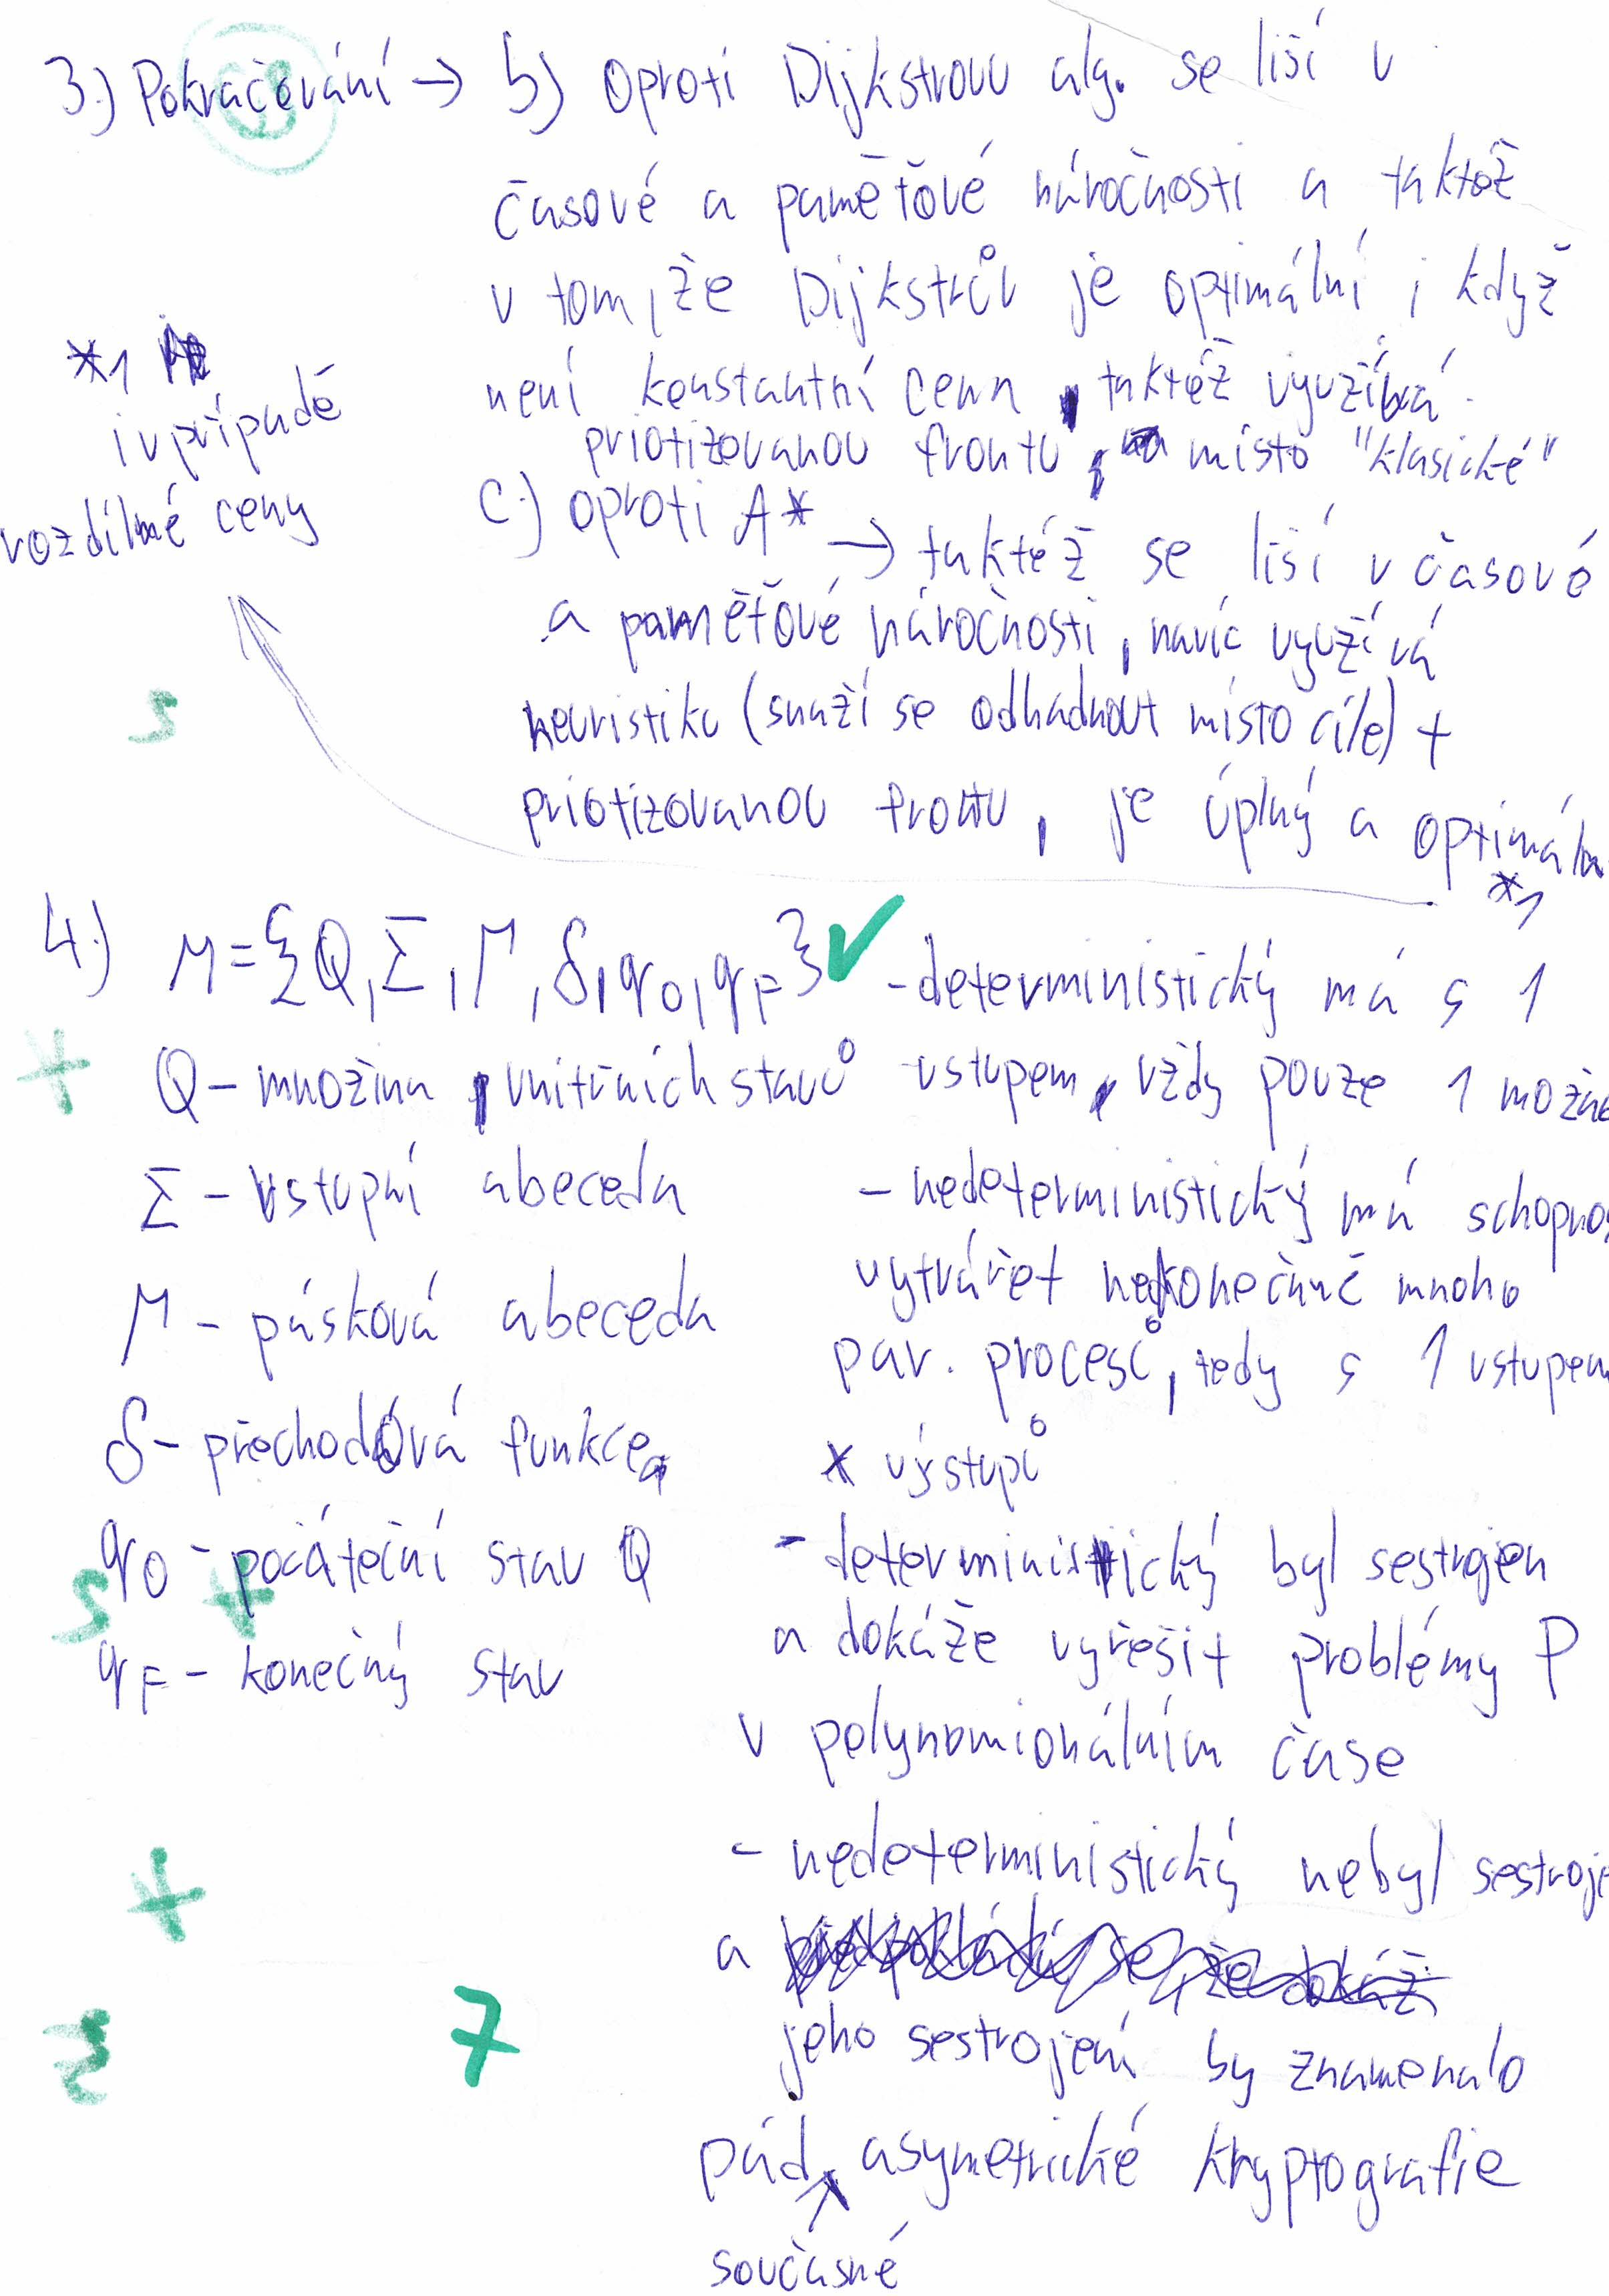 3.) Pokračování → b) oproti Dijkstrovu alg. se liší v
časové a paměťové náročnosti a taktéž
v tom, že Dijkstrův je optimální i když
není konstantní cena, taktéž využívá
priotizovanou frontu, místo "klasické"
*1
i v případě
rozdílné ceny
c.) oproti A* → taktéž se liší v časové
a paměťové náročnosti, navíc využívá
heuristiku (snaží se odhadnout místo cíle) +
priotizovanou frontu, je úplný a optimáln
*1
4.) M = {Q, Σ, Γ, δ, q0, qF}
Q - množina vnitřních stavů
Σ - vstupní abeceda
Γ - pásková abeceda
δ - přechodová funkce
q0 - počáteční stav Q
qF - konečný stav
- deterministický má s 1
vstupem, vždy pouze 1 možno
- nedeterministický má schopnos
vytvářet nekonečně mnoho
par. procesů, tedy s 1 vstupem
x výstupů
- deterministický byl sestrojen
a dokáže vyřešit problémy P
v polynomionálním čase
- nedeterministický nebyl sestroje
a
jeho sestrojení by znamenalo
pád současné asymetrické kryptografie
7